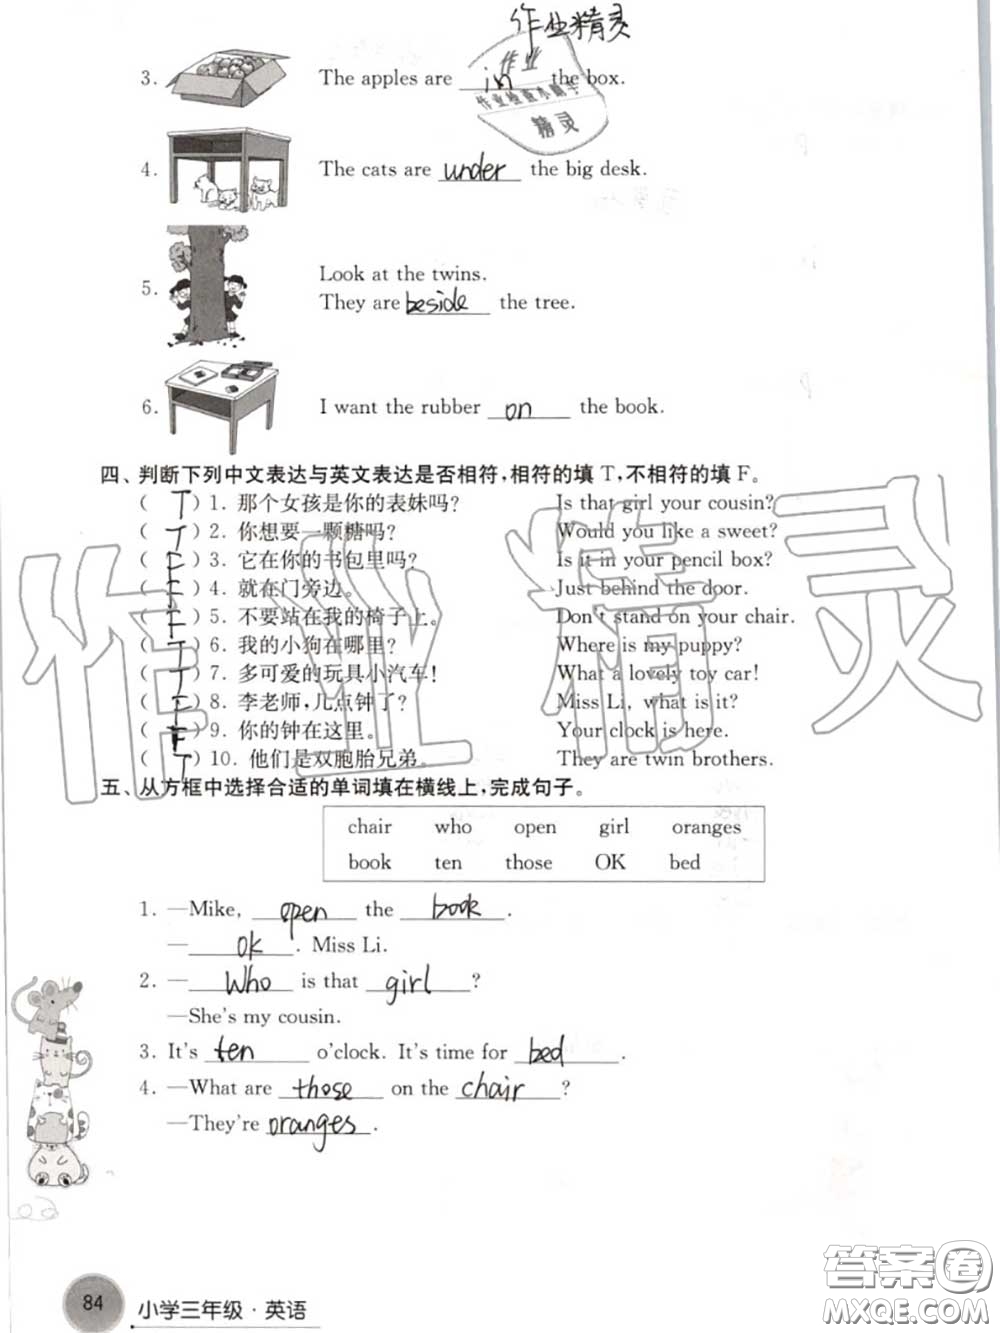 作业精灵
作业
作业检查小帮手
精灵
3. The apples are in the box.
4. The cats are under the big desk.
5. Look at the twins.
They are beside the tree.
6. I want the rubber on the book.
四、判断下列中文表达与英文表达是否相符,相符的填 T,不相符的填 F。
( T ) 1. 那个女孩是你的表妹吗? Is that girl your cousin?
( T ) 2. 你想要一颗糖吗? Would you like a sweet?
( F ) 3. 它在你的书包里吗? Is it in your pencil box?
( F ) 4. 就在门旁边。 Just behind the door.
( F ) 5. 不要站在我的椅子上。 Don't stand on your chair.
( T ) 6. 我的小狗在哪里? Where is my puppy?
( T ) 7. 多可爱的玩具小汽车! What a lovely toy car!
( F ) 8. 李老师,几点钟了? Miss Li, what is it?
( F ) 9. 你的钟在这里。 Your clock is here.
( T ) 10. 他们是双胞胎兄弟。 They are twin brothers.
作业精灵
五、从方框中选择合适的单词填在横线上,完成句子。
chair who open girl oranges
book ten those OK bed
1. —Mike, open the book.
—OK. Miss Li.
2. —Who is that girl?
—She's my cousin.
3. It's ten o'clock. It's time for bed.
4. —What are those on the chair?
—They're oranges.
84 小学三年级·英语
答案圈
MXQE.COM